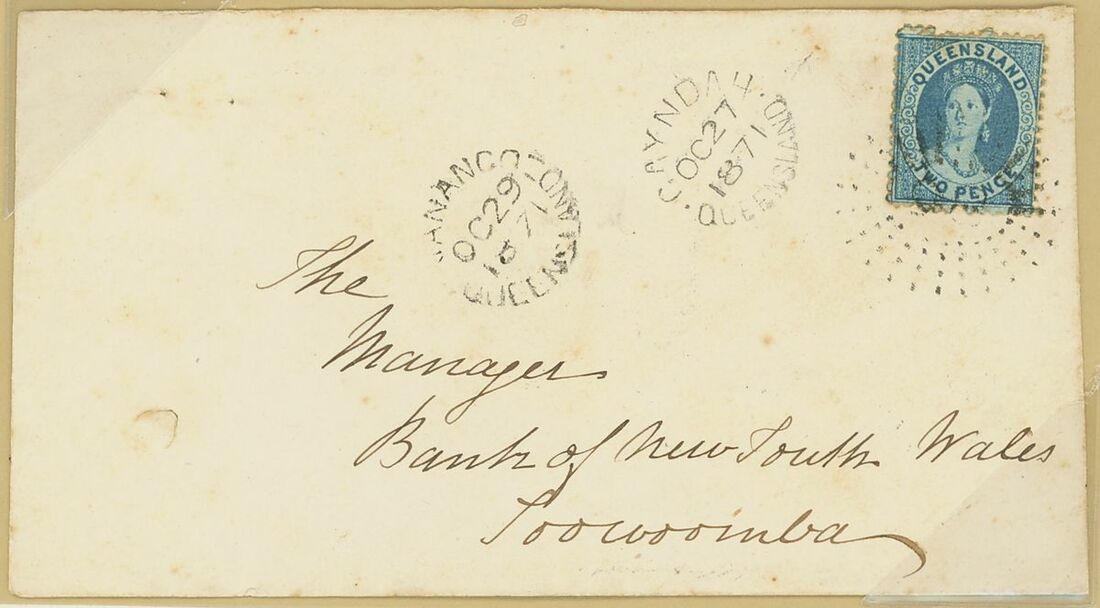 QUEENSLAND
TWO PENCE
GAYNDAH
OC 27
1871
QUEENSLAND
NANANGO
OC 29
71
QUEENSLAND
The
Manager
Bank of New South Wales
Toowoomba